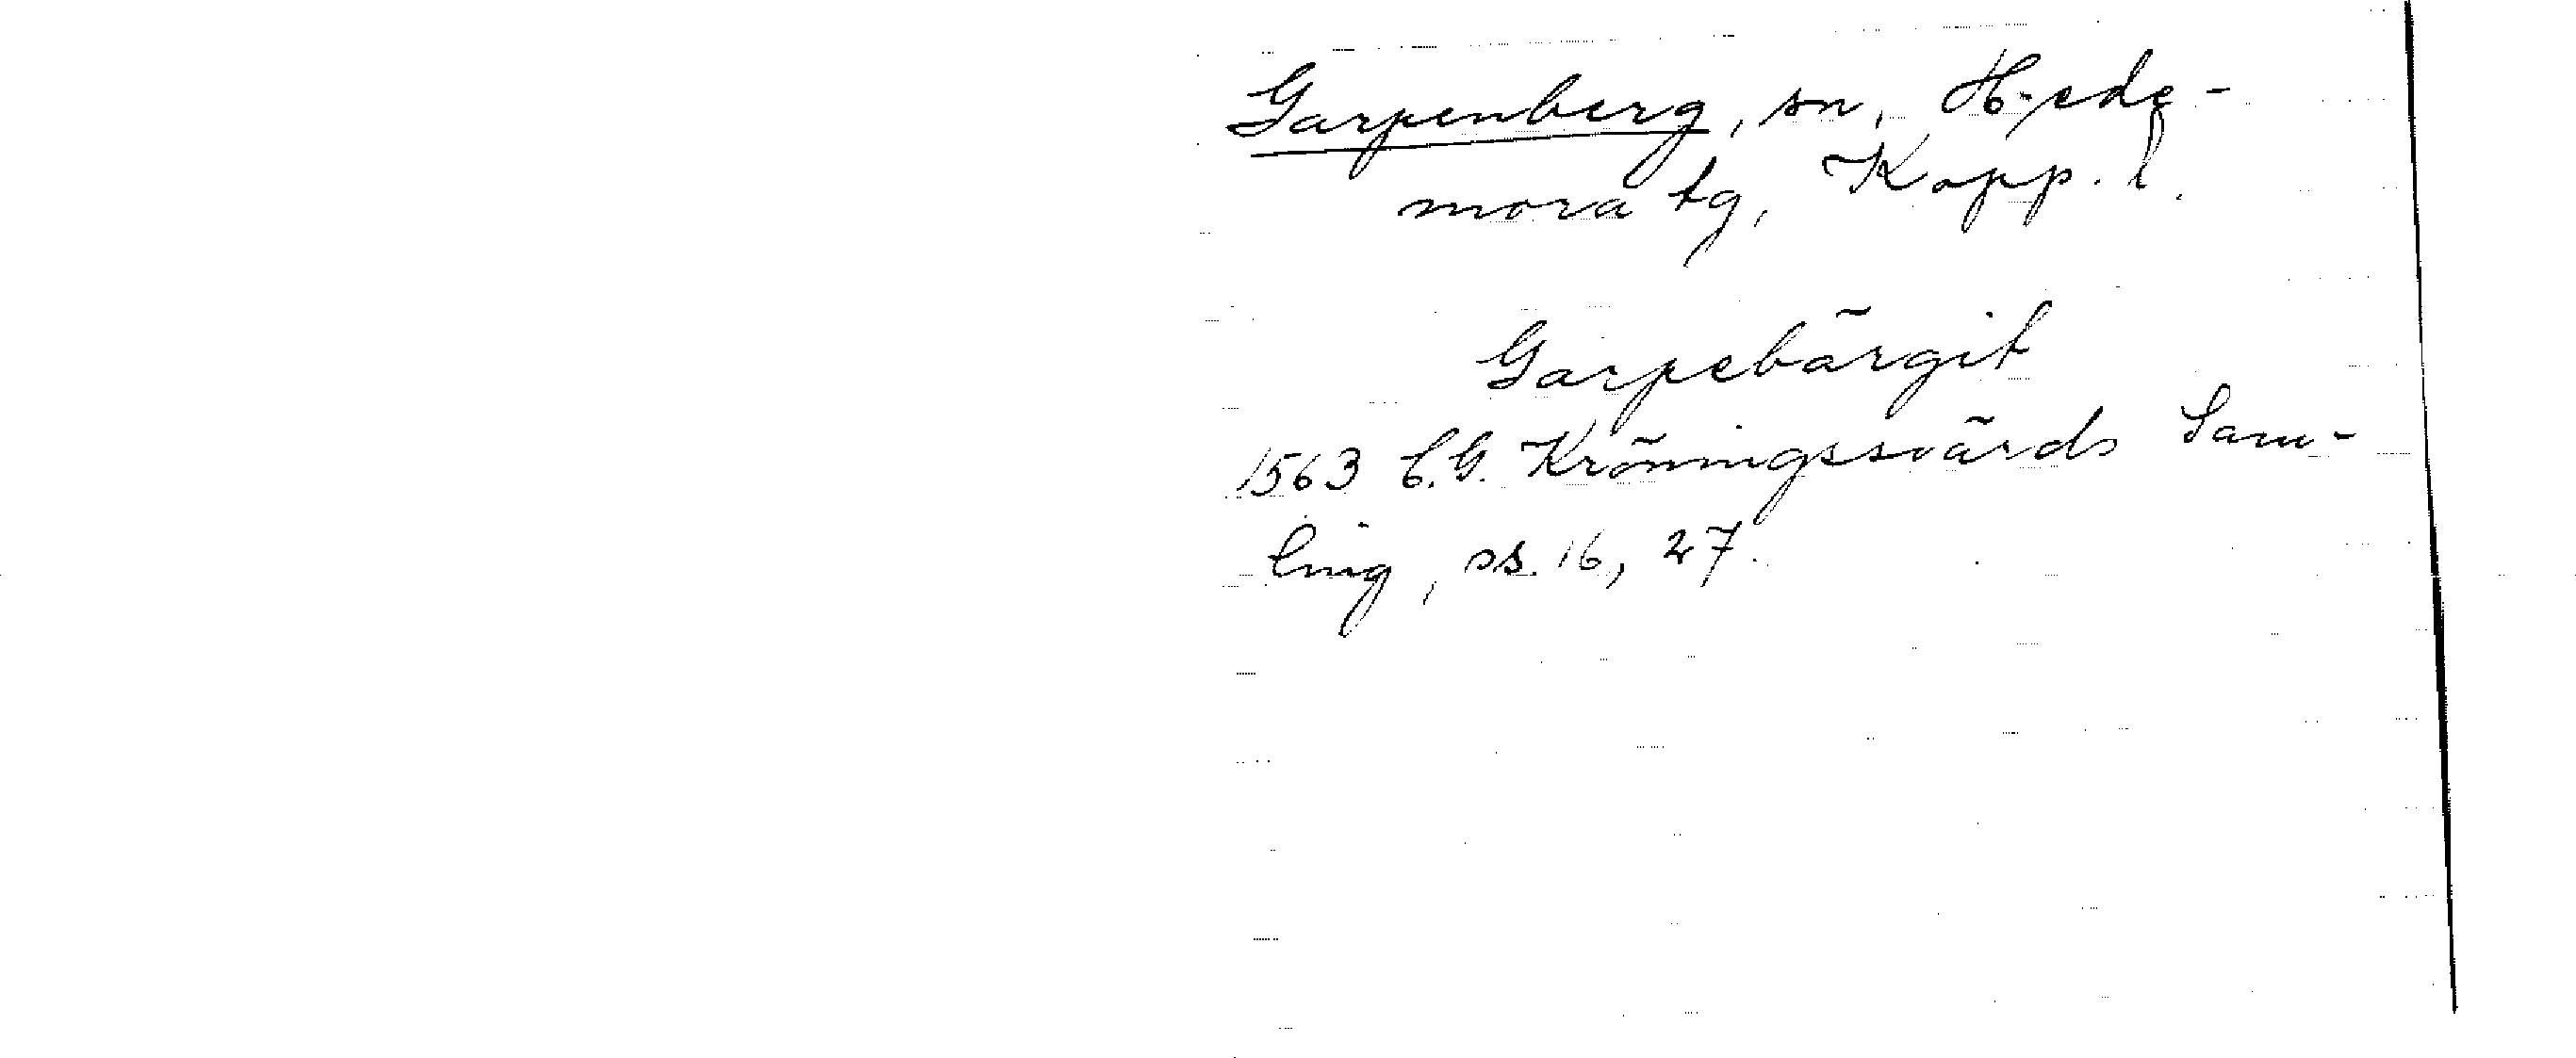 Garpenberg, sn, Hede-
mora tg, Kopp. l.
Garpebärgit
1563 C.G. Kröningssvärds Sam-
ling, ss. 16, 27.